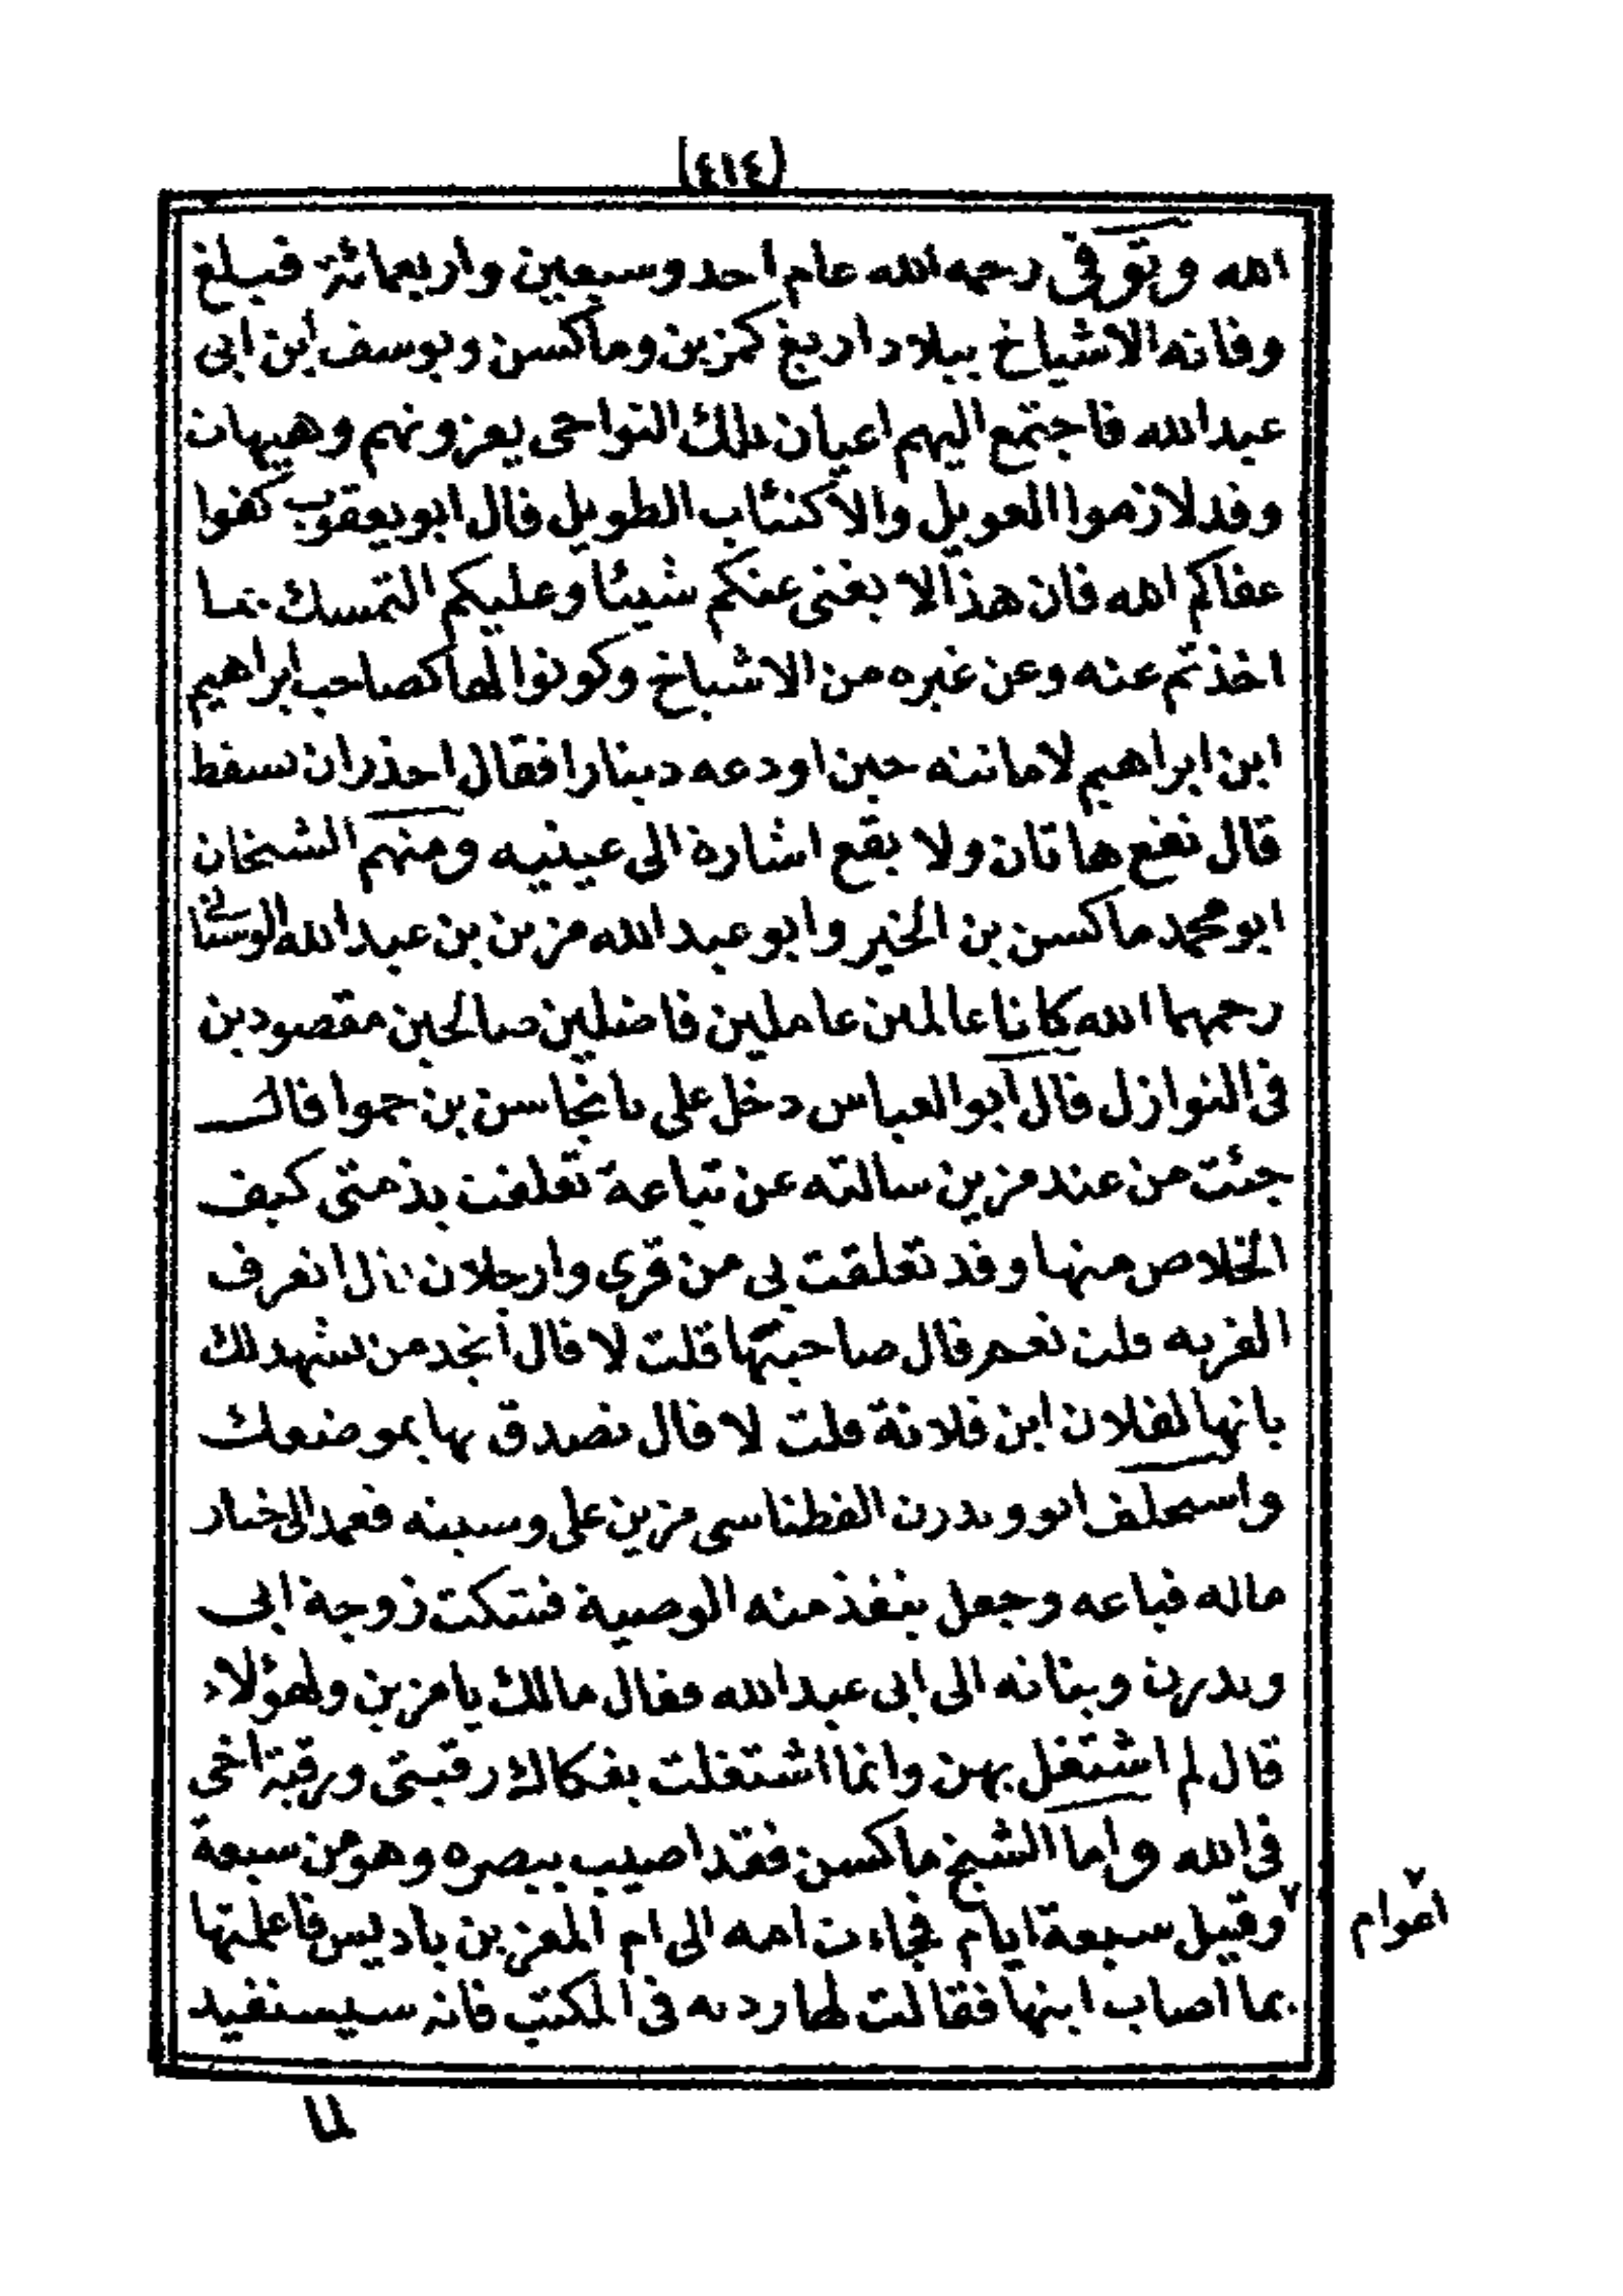 (٤١٤)
الله وتوفى رحمه الله عام احد وسبعين واربعمائة فبلغ
وفاته الاشياخ ببلاد اريغ كمزين وماكسن ويوسف ابن ابى
عبدالله فاجتمع اليهم اعيان تلك النواحى يعزونهم وهيهات
وقد لازموا العويل والاكتئاب الطويل قال ابو يعقوب كفوا
عفاكم الله فان هذا لا يغنى عنكم شيئا وعليكم التمسك بما
اخذتم عنه وعن غيره من الاشياخ وكونوا لها كصاحب ابراهيم
ابن ابراهيم لامانته حين اودعه دينارا فقال احذر ان تسقط
قال تقع هاتان ولا يقع اشارة الى عينيه ومنهم الشيخان
ابو محمد ماكسن بن الخير وابو عبدالله مزين بن عبدالله الوسيانى
رحمهما الله كانا عالمين عاملين فاضلين صالحين مقصودين
فى النوازل قال ابو العباس دخل على بن حموا قال
جئت من عند مزين سالته عن تباعة تعلقت بذمتى كيف
الخلاص منها وقد تعلقت بى من قرى وارجلان قال اتعرف
القرية قلت نعم قال صاحبتها قلت لا قال أتجد من يشهد لك
بانها لفلان ابن فلانة قلت لا قال تصدق بها بموضعك
واستخلف ابو ويدرن الفطناسى مزين على وصيته فعمد الى خيار
ماله فباعه وجعل ينفذ منه الوصية فشتكت زوجة ابى
ويدرن وبناته الى ابى عبدالله فقال مالك يا مزين ولهؤلاء
قال لم اشتغل بهن وانما اشتغلت بفكاك رقبتى ورقبة اخى
فى الله واما الشيخ ماكسن فقد اصيب ببصره وهو من سبعة
٧ وقيل سبعة ايام فجاءت امه الى ام المعز بن باديس فاعلمتها
بما اصاب ابنها فقالت لها رديه فى المكتب فانه سيستفيد
٧ اعوام
لما